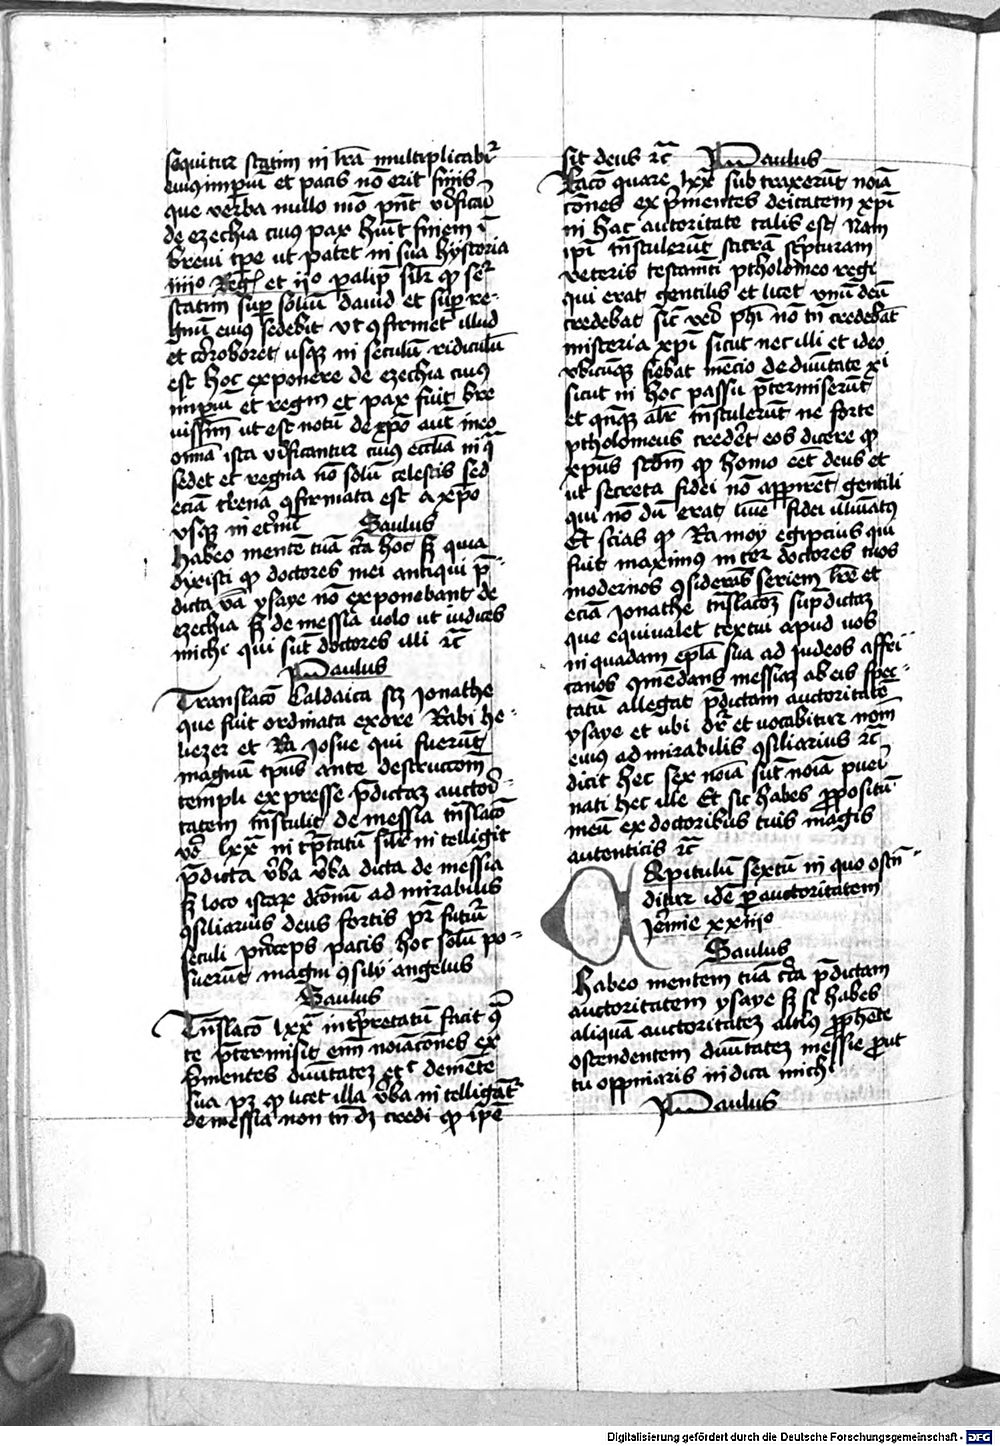 sequitur statim in lr̄a multiplicabir̄
eius impiū et pacis nō erit finis
que verba nullo mō pn̄t v̓ificari
de ezechia cuius pax hūit finem ī
brevi tpe ut patet in sua hystoria
iiijo Reg et ijo palip̄ silr ꝙ se
statim sup soliū dauid et sup re-
gnū eius sedebit vt ꝯfirmet illud
et corroboret usqꝫ in seculū ridiculū
est hoc exponere de ezechia cuius
impiū et regnū et pax fuit bre
uissim ut est notū de xp̄o aūt in eo
omīa ista v̓ificantur cuius ecclīa in q̄
sedet et regnat nō solū celestis sed
eciā t̓rena ꝯfirmata est a xp̄o
vsqꝫ in et̓nū Saulus
Habeo mentē tuā c̓ca hoc sꝫ quia
dixisti ꝙ doctores mei antiqui p̄-
dicta v̓ba ysaye nō exponebant de
ezechia sꝫ de messia uolo ut indices
michi qui sūt doctores illi ⁊c̄
Paulus
Translacō Caldaica scꝫ Jonathe
que fuit ordinata ex ore Rabi he-
liezer et Ra Josue qui fuerūt
magnū tp̄us ante destructōm
templi expresse p̄dictaꝫ auctori-
tatem tn̄stulit de messia tn̄slacō
v̓o lxxᵃ int̓p̄tatū silr intelligit
p̄dicta v̓ba v̓ba dicta de messia
sꝫ loco istaꝝ dc̄onū admirabilis
ꝯsiliarius deus fortis pr̄ futuri
seculi princeps pacis hoc solū po-
suerūt magni ꝯsilij angelus
Saulus
Tn̄slacō lxxᵃ int̓pretatū facit ꝯ̄
te p̄termisit em̄ noīacōnes ex
p̓mentes diuītatꝫ et demēte
sua pꝫ ꝙ licet illa v̓ba intelligāt
de messia non tn̄ dꝫ credi ꝙ ip̄e
sit deus ⁊c̄ Paulus
Racō quare lxxᵃ subtraxerūt noīa
cōnes exp̓mentes deitatem xp̄i
in hac autoritate talis est Nam
ipi tn̄stulerūt sacrā sc̓pturam
veteris testamēti ptholomeo regi
qui erat gentilis et licet vnū deū
credebat sic̄ v̓o ph̄i nō tn̄ credebat
misteria xp̄i sicut nec illi et ideo
vbicūqꝫ fiebat mēcio de diuītate xi
sicut in hoc passu p̄termiserūt
et qn̄qꝫ alr̄ tn̄stulerūt ne forte
ptholomeus crederet eos dicere ꝙ
xp̄us scdm̄ ꝙ homo eēt deus et
ut secreta fidei nō apperirēt gentili
qui nō dū erat lumē fidei illuīatꝰ
Et scias ꝙ Ra moy egipcius qui
fuit maximus inter doctores tuos
modernos ꝯsiderās seriem lr̄e et
eciā Jonathe tn̄slacōꝫ sup̄dictaꝫ
que equivalet textui apud uos
in quadam epl̄a sua ad iudeos affri-
canos ꝯmēdans messiaꝫ ab eis spec-
tatū allegat p̄dictam auctoritatē
ysaye et ubi dr̄ et vocabitur nom̄
eius admirabilis ꝯsiliarius ⁊c̄
dicit hec sex noīa sūt noīa pueri
nati hec ille Et sic habes ꝓpositū
meū ex doctoribus tuis magis
autenticis ⁊c̄
Capitulū sextū in quo ostn̄-
ditur idē per auctoritatem
Jeremie xxiijo
Saulus
Habeo mentem tuā c̓ca p̄dictam
auctoritatem ysaye sꝫ si habes
aliquā auctoritateꝫ alic̄ꝰ ꝓphete
ostendentem diuītateꝫ messie prout
tu oppinaris indica michi
Paulus
Digitalisierung gefördert durch die Deutsche Forschungsgemeinschaft - DFG